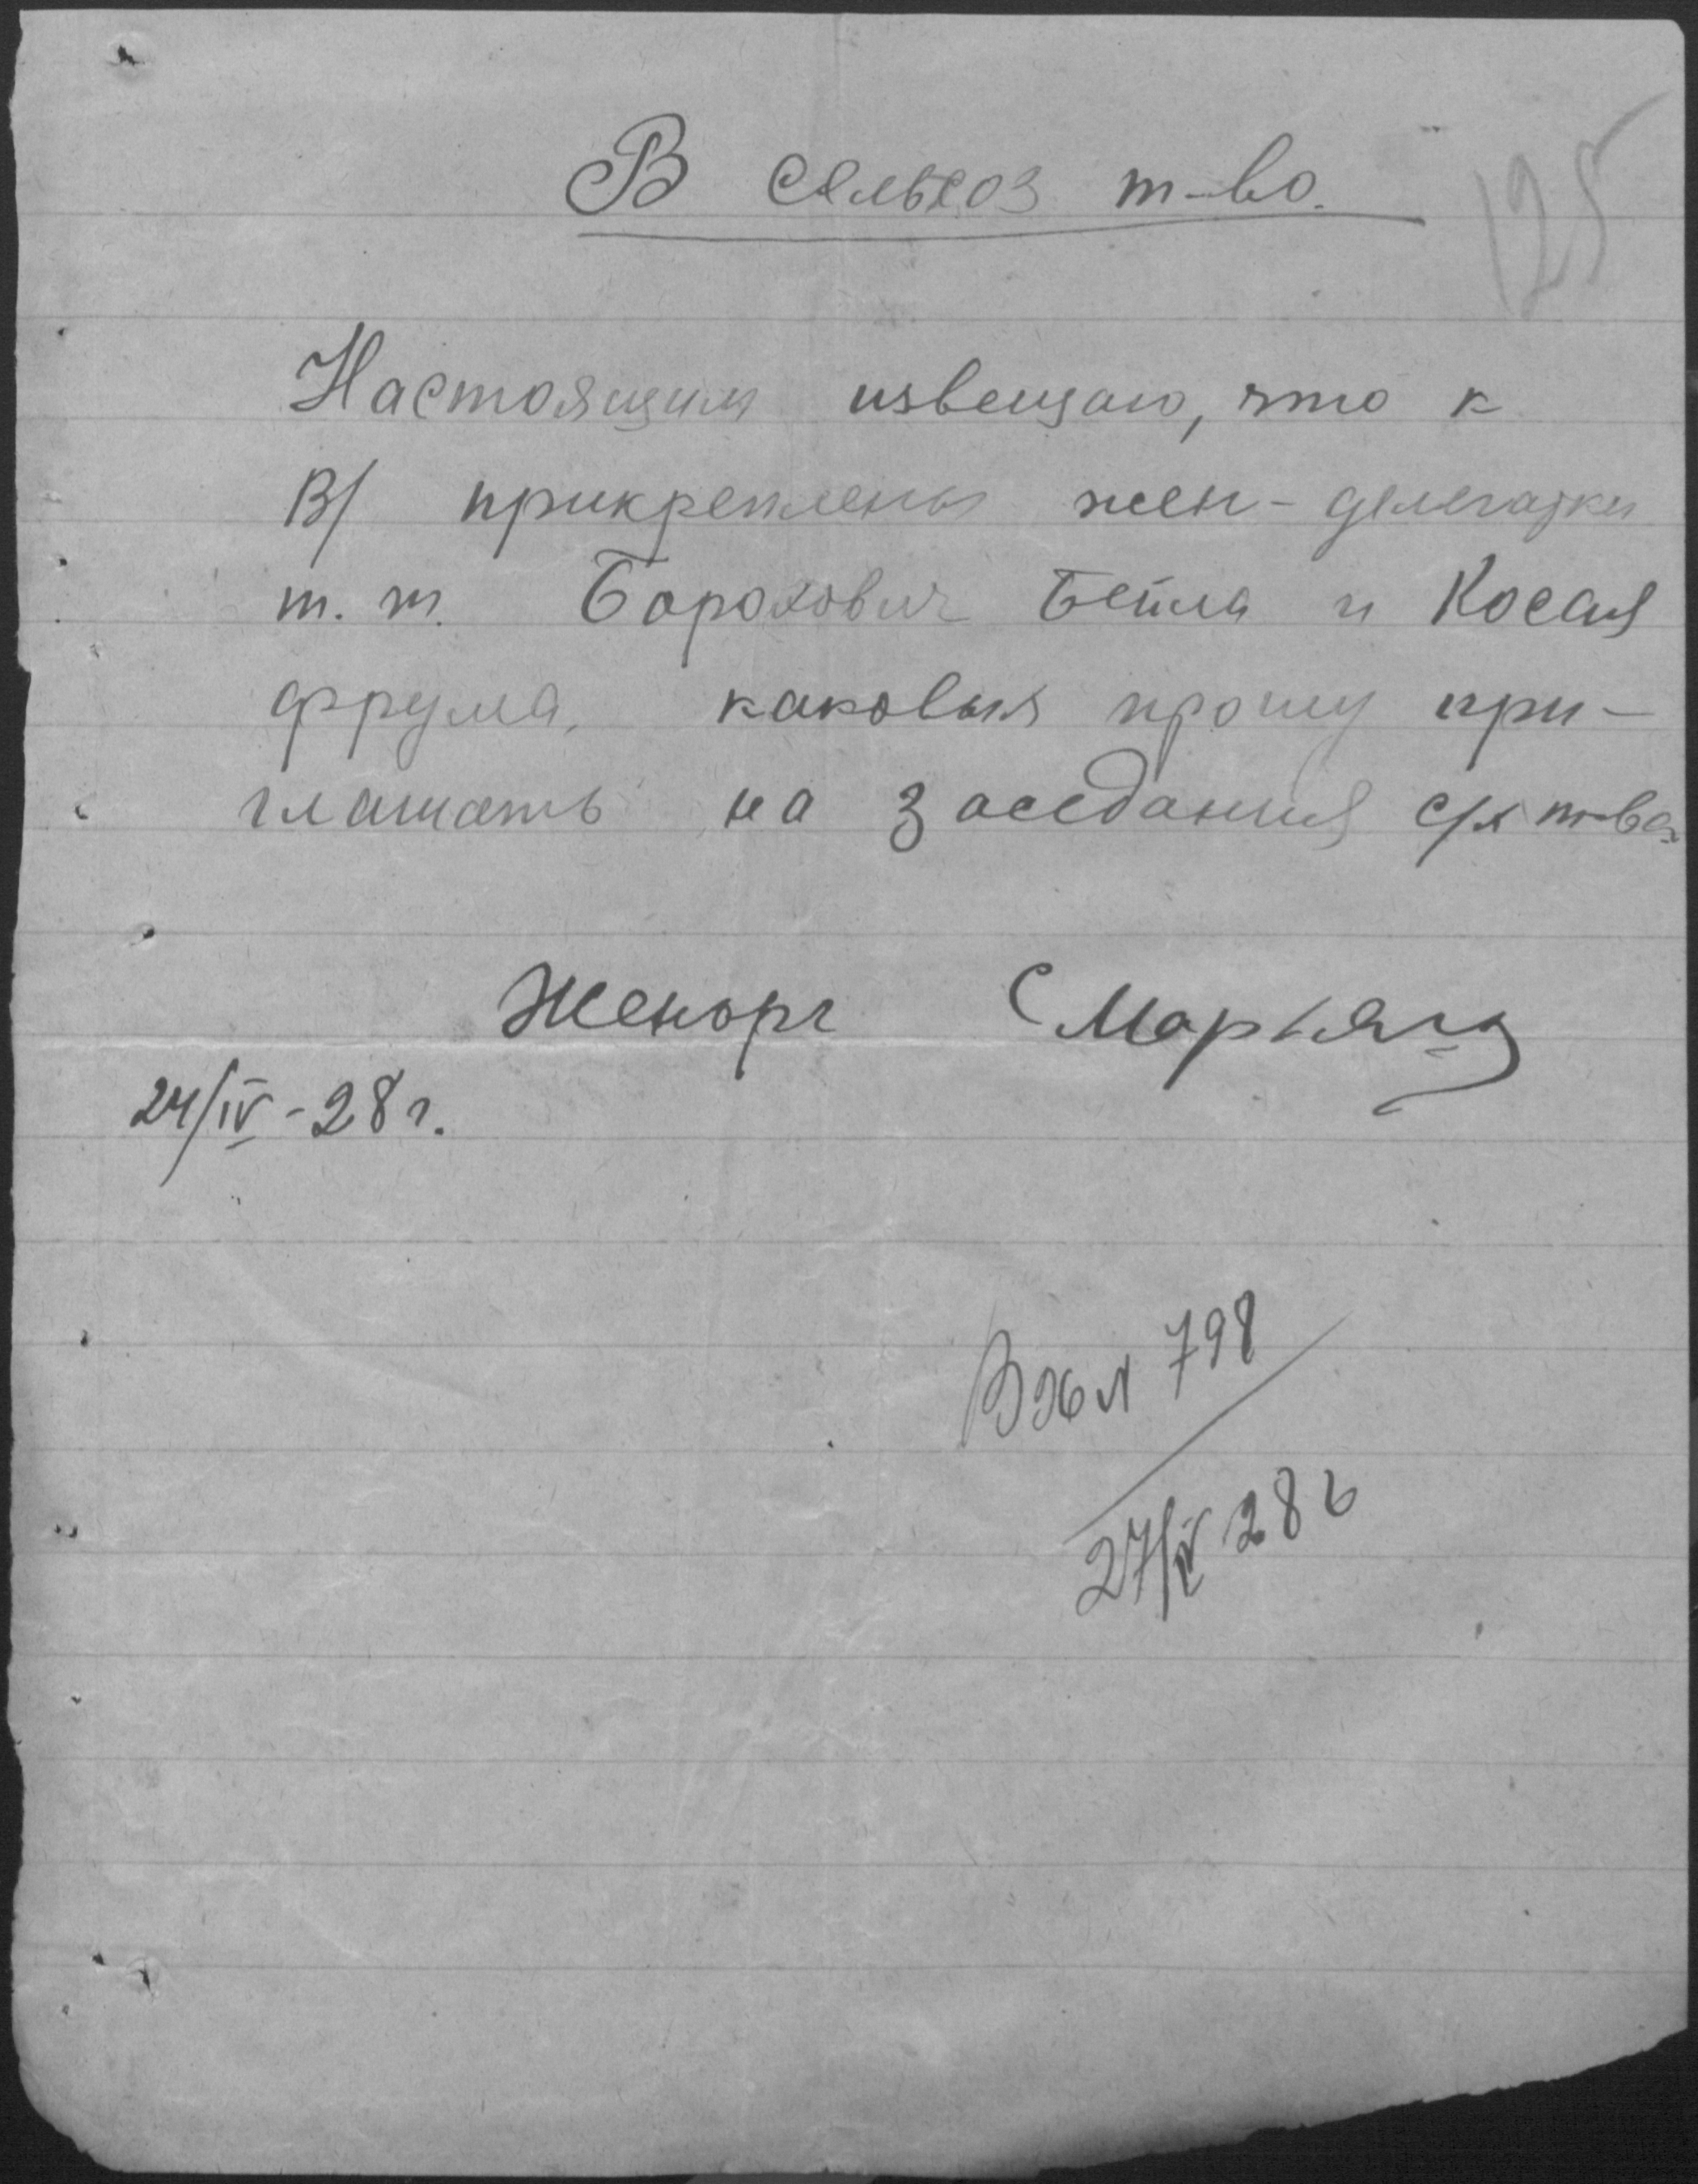 В сельхоз т-во.
125
Настоящим извещаю, что к
В/ прикреплены жен-делегатки
т.т. Борохович Бейла и Косая
Фрума, каковыя прошу при-
глашать на заседания с/х т-ва.
Женорг
24/IV-28 г.
Вх № 798
27/IV 28 г